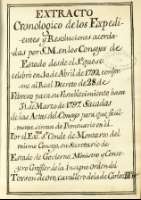 EXTRACTO
Cronologico de los Expedi-
entes y Resoluciones acorda-
das por S.M. en los Consejos de
Estado desde el 1º que se
celebró en 30 de Abril de 1792,
al Real Decreto de 28 de
Febrero para su Establecimiento hasta
31 de Marzo de 1797. Sacadas
de las Actas del Consejo para que
por el Exmo. Sr. Conde de Montarco del
mismo Consejo, su Secretario de
Estado de Govierno, Ministro y
de la Insigne Orden del
Toyson de oro, cavallero de la de Carlos III